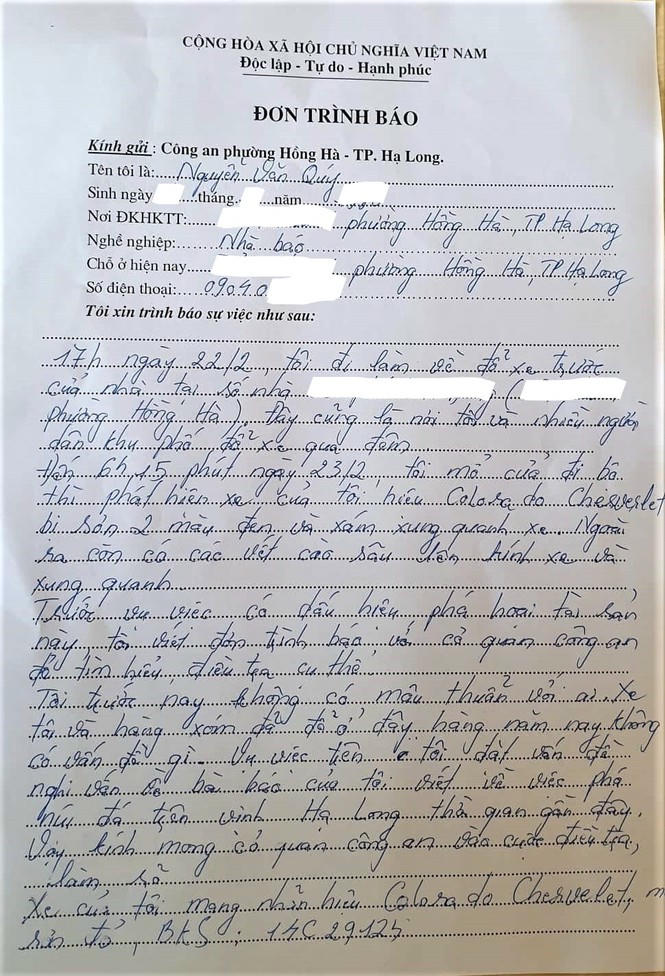 CỘNG HÒA XÃ HỘI CHỦ NGHĨA VIỆT NAM
Độc lập - Tự do - Hạnh phúc
ĐƠN TRÌNH BÁO
Kính gửi : Công an phường Hồng Hà - TP. Hạ Long.
Tên tôi là: Nguyễn Văn Qúy
Sinh ngày tháng năm
Nơi ĐKHKTT: phường Hồng Hà, TP Hạ Long
Nghề nghiệp: Nhà báo
Chỗ ở hiện nay phường Hồng Hà, TP Hạ Long
Số điện thoại: 0904.0
Tôi xin trình báo sự việc như sau:
17h ngày 22/2, tôi đi làm về đỗ xe trước
cửa nhà tại số nhà (
phường Hồng Hà). Đây cũng là nơi tôi và nhiều người
dân khu phố đỗ xe qua đêm
Đến 6h 15 phút ngày 23/2, tôi mở cửa đi bộ
thì phát hiện xe của tôi hiệu Colorado Chesverlet
bị sơn 2 màu đen và xám xung quanh xe. Ngoài
ra còn có các vết cào sâu trên kính xe và
xung quanh
Trước vụ việc có dấu hiệu phá hoại tài sản
này, tôi viết đơn trình báo với cơ quan công an
để tìm hiểu, điều tra cụ thể.
Tôi trước nay không có mâu thuẫn với ai. Xe
tôi và hàng xóm đã đỗ ở đây hàng năm nay không
có vấn đề gì. Vụ việc trên tôi đặt vấn đề
nghi vấn về bài báo của tôi viết về việc phá
núi đá trên vịnh Hạ Long thời gian gần đây.
Vậy kính mong cơ quan công an vào cuộc điều tra,
làm rõ
Xe của tôi mang nhãn hiệu Colorado Chesvelet, m
sơn đỏ, BKS: 14C 29124